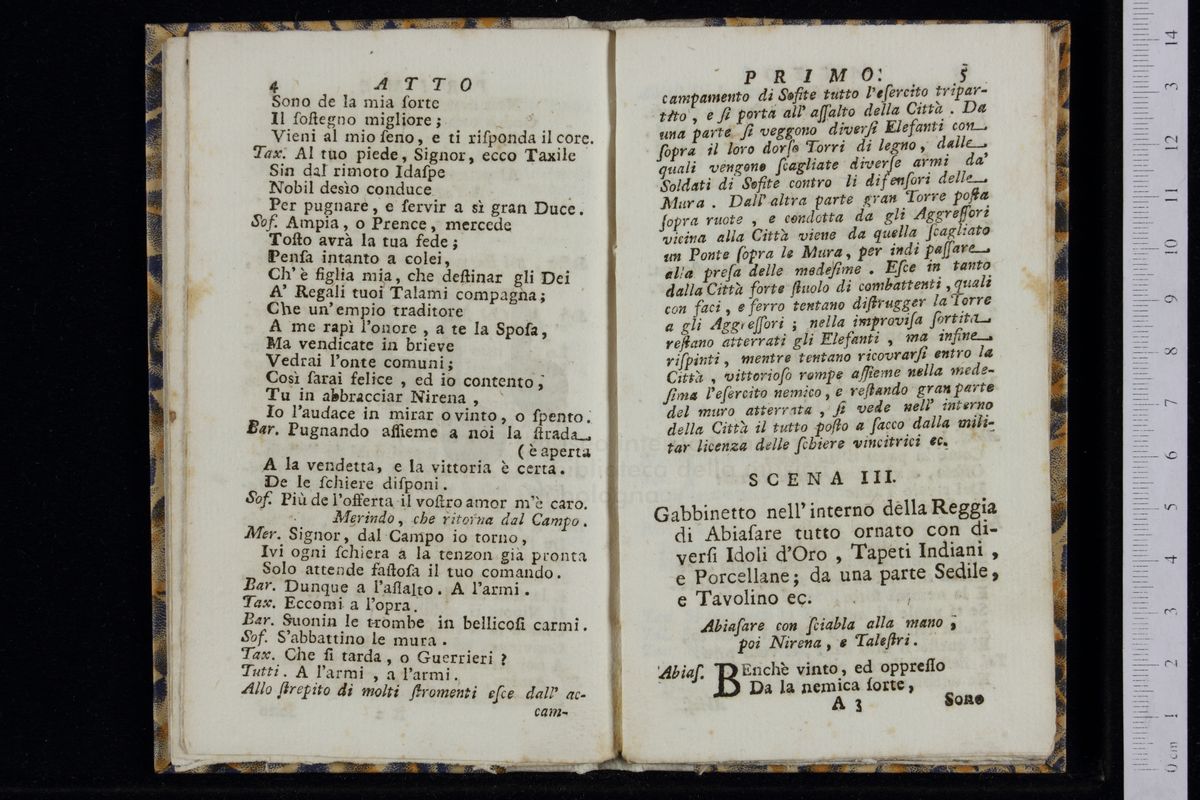 4 ATTO
Sono de la mia ſorte
Il ſoſtegno migliore;
Vieni al mio ſeno, e ti riſponda il core.
Tax. Al tuo piede, Signor, ecco Taxile
Sin dal rimoto Idaſpe
Nobil desìo conduce
Per pugnare, e ſervir a sì gran Duce.
Sof. Ampia, o Prence, mercede
Toſto avrà la tua fede;
Penſa intanto a colei,
Ch'è figlia mia, che deſtinar gli Dei
A' Regali tuoi Talami compagna;
Che un'empio traditore
A me rapì l'onore, a te la Spoſa,
Ma vendicate in brieve
Vedrai l'onte comuni;
Così ſarai felice, ed io contento;
Tu in abbracciar Nirena,
Io l'audace in mirar o vinto, o ſpento.
Bar. Pugnando aſſieme a noi la ſtrada
(è aperta
A la vendetta, e la vittoria è certa.
De le ſchiere diſponi.
Sof. Più de l'offerta il voſtro amor m'è caro.
Merindo, che ritorna dal Campo.
Mer. Signor, dal Campo io torno,
Ivi ogni ſchiera a la tenzon già pronta
Solo attende faſtoſa il tuo comando.
Bar. Dunque a l'aſſalto. A l'armi.
Tax. Eccomi a l'opra.
Bar. Suonin le trombe in bellicoſi carmi.
Sof. S'abbattino le mura.
Tax. Che ſi tarda, o Guerrieri?
Tutti. A l'armi, a l'armi.
Allo ſtrepito di molti ſtromenti eſce dall' ac-
cam-
PRIMO. 5
campamento di Sofite tutto l'eſercito tripar-
tito, e ſi porta all' aſſalto della Città. Da
una parte ſi veggono diverſi Elefanti con
ſopra il loro dorſo Torri di legno, dalle
quali vengono ſcagliate diverſe armi da'
Soldati di Sofite contro li difenſori delle
Mura. Dall' altra parte gran Torre poſta
ſopra ruote, e condotta da gli Aggreſſori
vicina alla Città viene da quella ſcagliato
un Ponte ſopra le Mura, per indi paſſare
alla preſa delle medeſime. Eſce in tanto
dalla Città forte ſtuolo di combattenti, quali
con faci, e ferro tentano diſtrugger la Torre
a gli Aggreſſori; nella improviſa ſortita
reſtano atterrati gli Elefanti, ma infine
riſpinti, mentre tentano ricovrarſi entro la
Città, vittorioſo rompe aſſieme nella mede-
ſima l'eſercito nemico, e reſtando gran parte
del muro atterrata, ſi vede nell' interno
della Città il tutto poſto a ſacco dalla mili-
tar licenza delle ſchiere vincitrici ec.
SCENA III.
Gabbinetto nell'interno della Reggia
di Abiaſare tutto ornato con di-
verſi Idoli d'Oro, Tapeti Indiani,
e Porcellane; da una parte Sedile,
e Tavolino ec.
Abiaſare con ſciabla alla mano;
poi Nirena, e Taleſtri.
Abiaſ. BEnchè vinto, ed oppreſſo
Da la nemica ſorte,
A 3 Sono